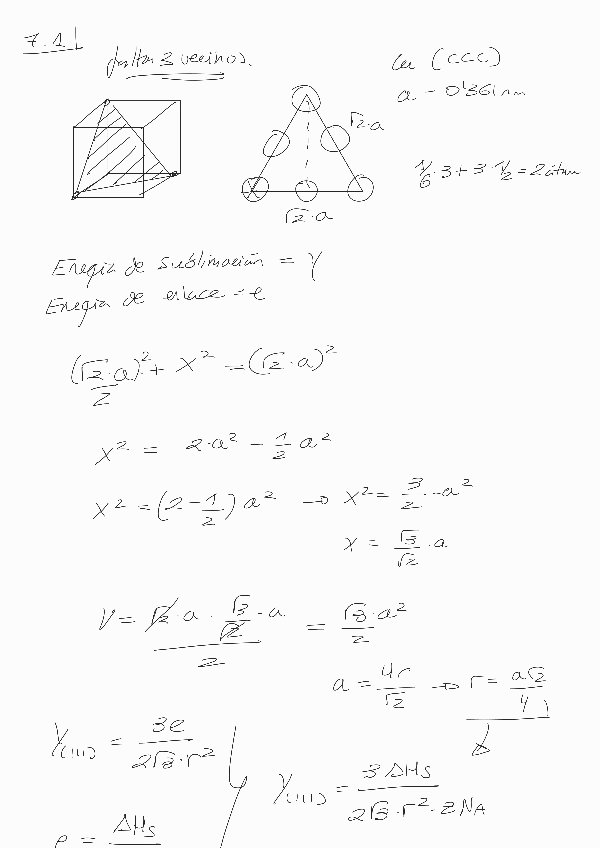 7.1.
faltan 3 vecinos.
Cu (C.C.C)
a = 0'361nm
√2·a
1/6·3 + 3·1/2 = 2 átom
√2·a
Energía de sublimación = γ
Energía de enlace = e
(√2·a/2)² + x² = (√2·a)²
x² = 2·a² - 1/2 a²
x² = (2 - 1/2) a² → x² = 3/2 · a²
x = √3/√2 · a
V = (√2·a · √3/√2 · a)/2 = √3·a²/2
a = 4r/√2 → r = a√2/4
γ(111) = 3e/(2√3·r²)
γ(111) = 3ΔHs/(2√3·r²·ZNA)
e = ΔHs